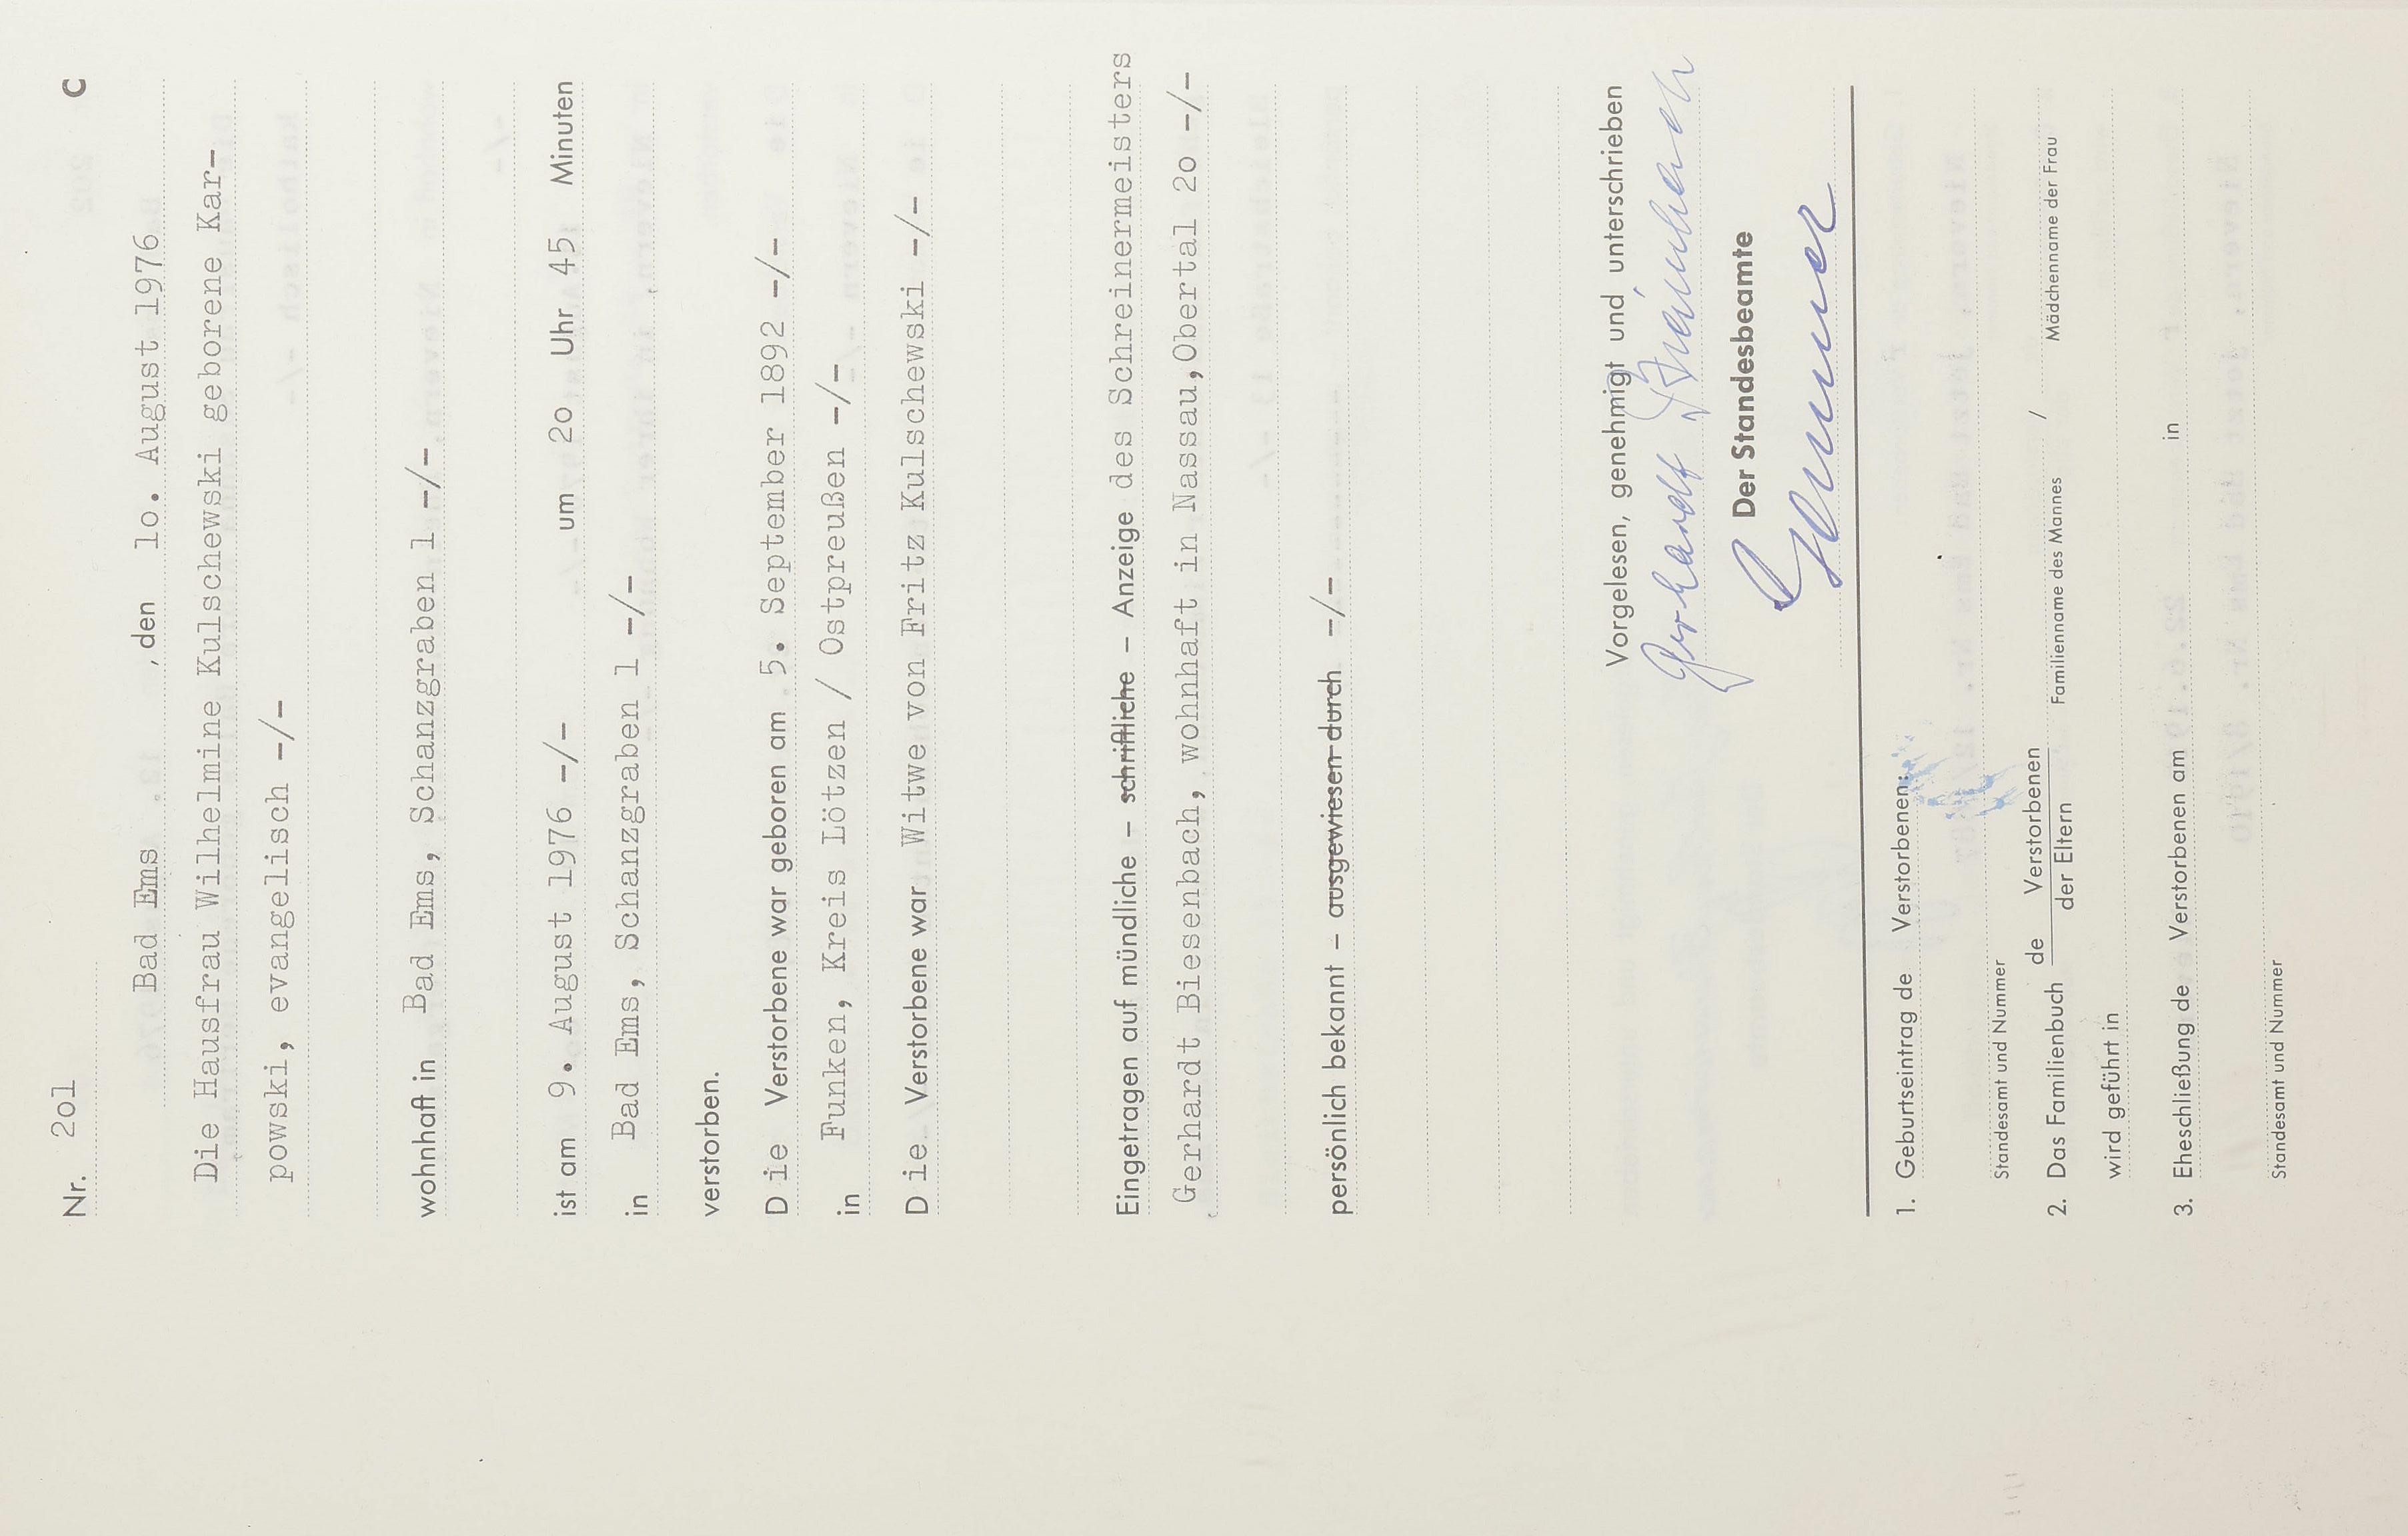 Nr. 2o1 C
Bad Ems , den 1o. August 1976
Die Hausfrau Wilhelmine Kulschewski geborene Kar-
powski, evangelisch -/-
wohnhaft in Bad Ems, Schanzgraben 1 -/-
ist am 9. August 1976 -/- um 2o Uhr 45 Minuten
in Bad Ems, Schanzgraben 1 -/-
verstorben.
Die Verstorbene war geboren am 5. September 1892 -/-
in Funken, Kreis Lötzen / Ostpreußen -/-
Die Verstorbene war Witwe von Fritz Kulschewski -/-
Eingetragen auf mündliche – schriftliche – Anzeige des Schreinermeisters
Gerhardt Biesenbach, wohnhaft in Nassau,Obertal 2o -/-
persönlich bekannt – ausgewiesen durch -/-
Vorgelesen, genehmigt und unterschrieben
Gerhardt Biesenbach
Der Standesbeamte
1. Geburtseintrag de Verstorbenen:
Standesamt und Nummer
2. Das Familienbuch de Verstorbenen der Eltern / 
Familienname des Mannes Mädchenname der Frau
wird geführt in
3. Eheschließung de Verstorbenen am in
Standesamt und Nummer